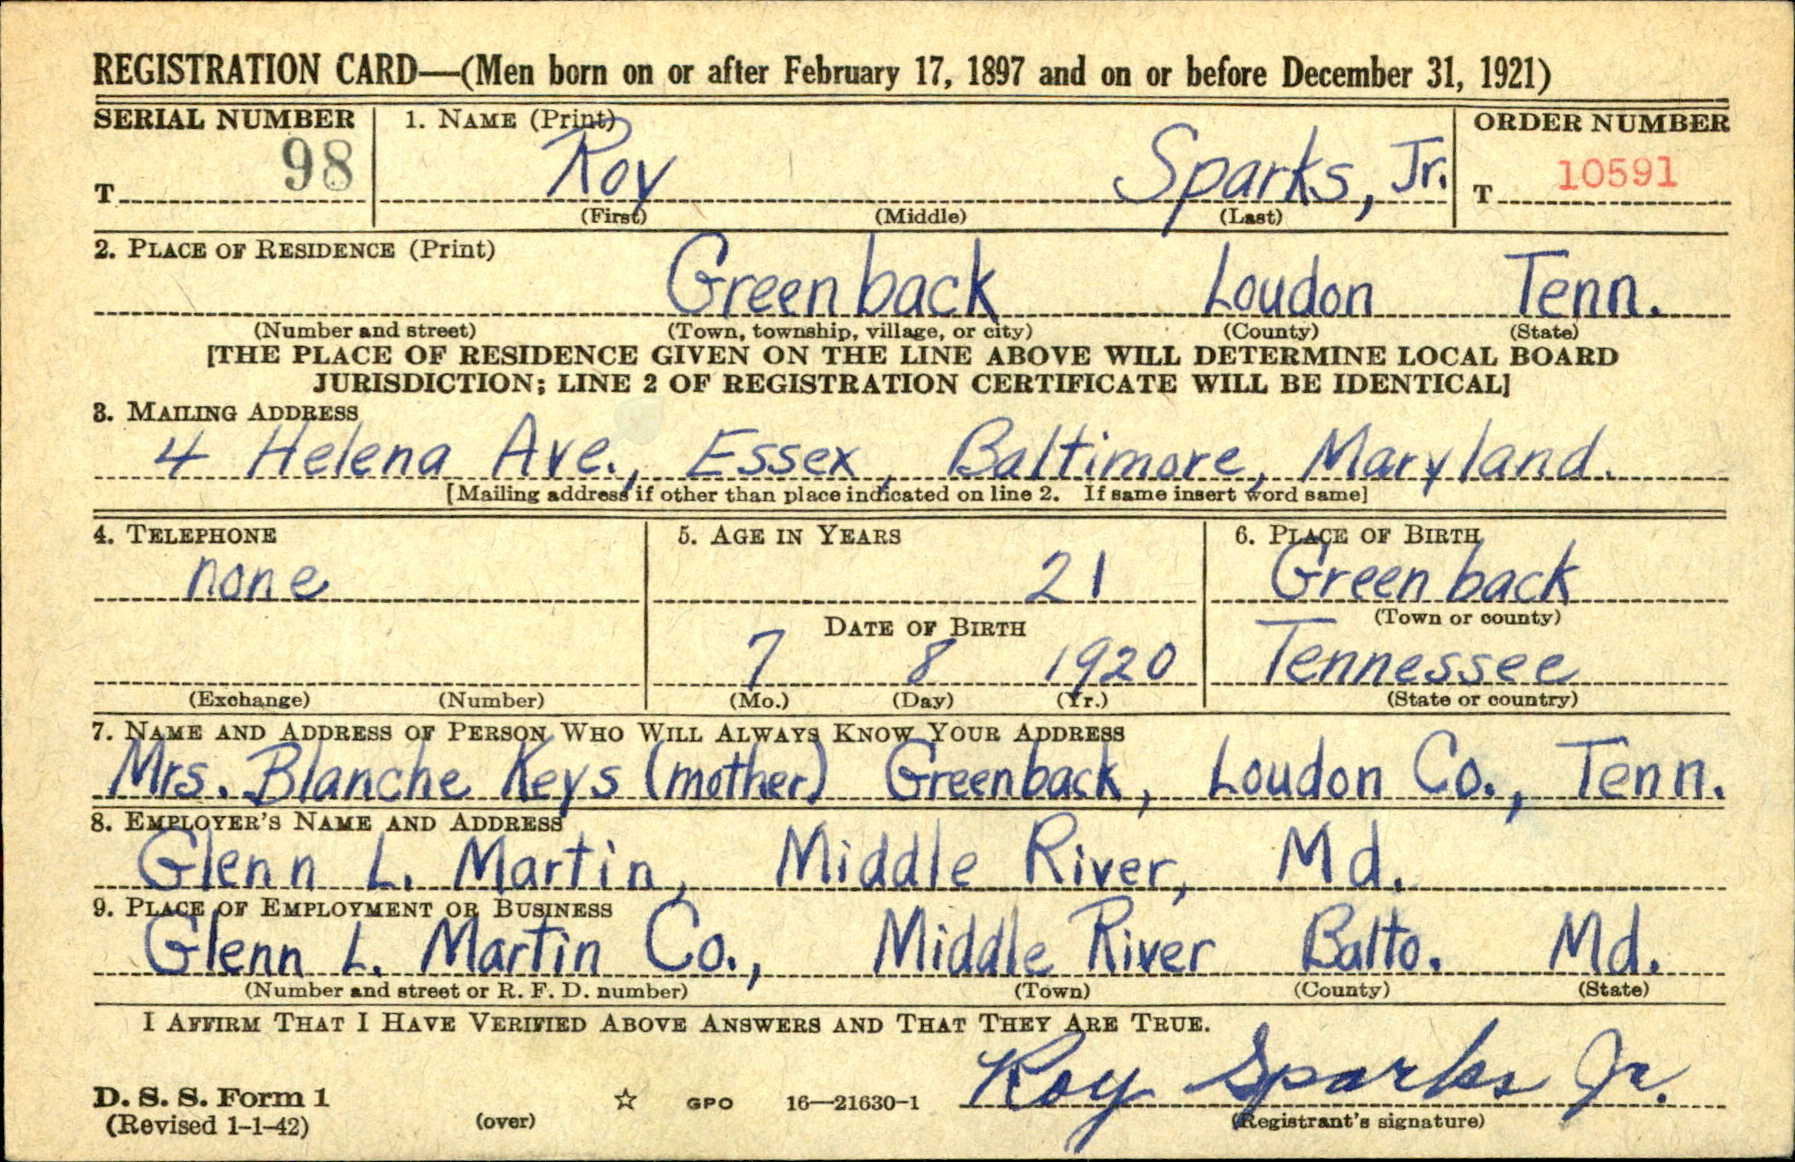 REGISTRATION CARD—(Men born on or after February 17, 1897 and on or before December 31, 1921)
SERIAL NUMBER 1. NAME (Print) ORDER NUMBER
T 98 Roy Sparks, Jr. T 10591
(First) (Middle) (Last)
2. PLACE OF RESIDENCE (Print)
Greenback Loudon Tenn.
(Number and street) (Town, township, village, or city) (County) (State)
[THE PLACE OF RESIDENCE GIVEN ON THE LINE ABOVE WILL DETERMINE LOCAL BOARD
JURISDICTION; LINE 2 OF REGISTRATION CERTIFICATE WILL BE IDENTICAL]
3. MAILING ADDRESS
4 Helena Ave., Essex, Baltimore, Maryland.
[Mailing address if other than place indicated on line 2. If same insert word same]
4. TELEPHONE 5. AGE IN YEARS 6. PLACE OF BIRTH
none 21 Greenback
DATE OF BIRTH (Town or county)
7 8 1920 Tennessee
(Exchange) (Number) (Mo.) (Day) (Yr.) (State or country)
7. NAME AND ADDRESS OF PERSON WHO WILL ALWAYS KNOW YOUR ADDRESS
Mrs. Blanche Keys (mother) Greenback, Loudon Co., Tenn.
8. EMPLOYER'S NAME AND ADDRESS
Glenn L. Martin, Middle River, Md.
9. PLACE OF EMPLOYMENT OR BUSINESS
Glenn L. Martin Co., Middle River Balto. Md.
(Number and street or R. F. D. number) (Town) (County) (State)
I AFFIRM THAT I HAVE VERIFIED ABOVE ANSWERS AND THAT THEY ARE TRUE.
Roy Sparks Jr.
D. S. S. Form 1 GPO 16—21630-1
(Revised 1-1-42) (over) (Registrant's signature)